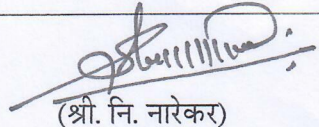 (श्री. नि. नारेकर)